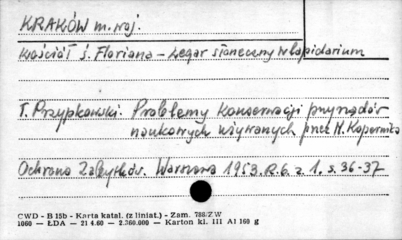 KRAKÓW m. woj.
Kościół ś. Floriana – zegar słoneczny w lapidarium
T. Przypkowski. Problemy konserwacji przyrządów
naukowych używanych przez M. Kopernika
Ochrona Zabytków. Warszawa 1953. R. 6. z. 1. s. 36-37
CWD - B 15b - Karta katal. (z liniat.) - Zam. 788/ZW
1060 — ŁDA — 21 4.60 — 2.360.000 — Karton kl. III A1 160 g